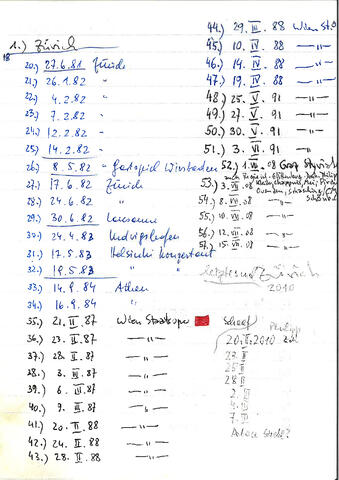 1.) Zürich
18
20.) 27.6.81 Zürich
21.) 26.1.82 "
22.) 4.2.82 "
23.) 7.2.82 "
24.) 12.2.82 "
25.) 14.2.82 "
26.) 8.5.82 Gastspiel Wiesbaden
27.) 17.6.82 Zürich
28.) 24.6.82 "
29.) 30.6.82 Lausanne
30.) 24.4.83 Ludwigshafen
31.) 17.5.83 Helsinki konzertant
32.) 19.5.83 " "
33.) 14.9.84 Athen
34.) 16.9.84 "
35.) 21.II.87 Wien Staatsoper
36.) 23.II.87 —"—
37.) 28.II.87 —"—
38.) 3.III.87 —"—
39.) 6.III.87 —"—
40.) 9.III.87 —"—
41.) 20.II.88 —"—
42.) 24.II.88 —"—
43.) 28.II.88 —"—
44.) 29.III.88 Wien St.O
45.) 10.IV.88 —"—
46.) 14.IV.88 —"—
47.) 19.IV.88 —"—
48.) 25.V.91 —"—
49.) 27.V.91 —"—
50.) 30.V.91 —"—
51.) 3.VI.91 —"—
52.) 1.VII.08 Graz Styriarte
53.) 3.VII.08
54.) 8.VII.08
55.) 10.VII.08 —"—
56.) 12.VII.08 —"—
57.) 15.VII.08 —"—
Zürich
2010
Philipp
20.II.2010
23.II
25.II
28.II
2.
4.
7.